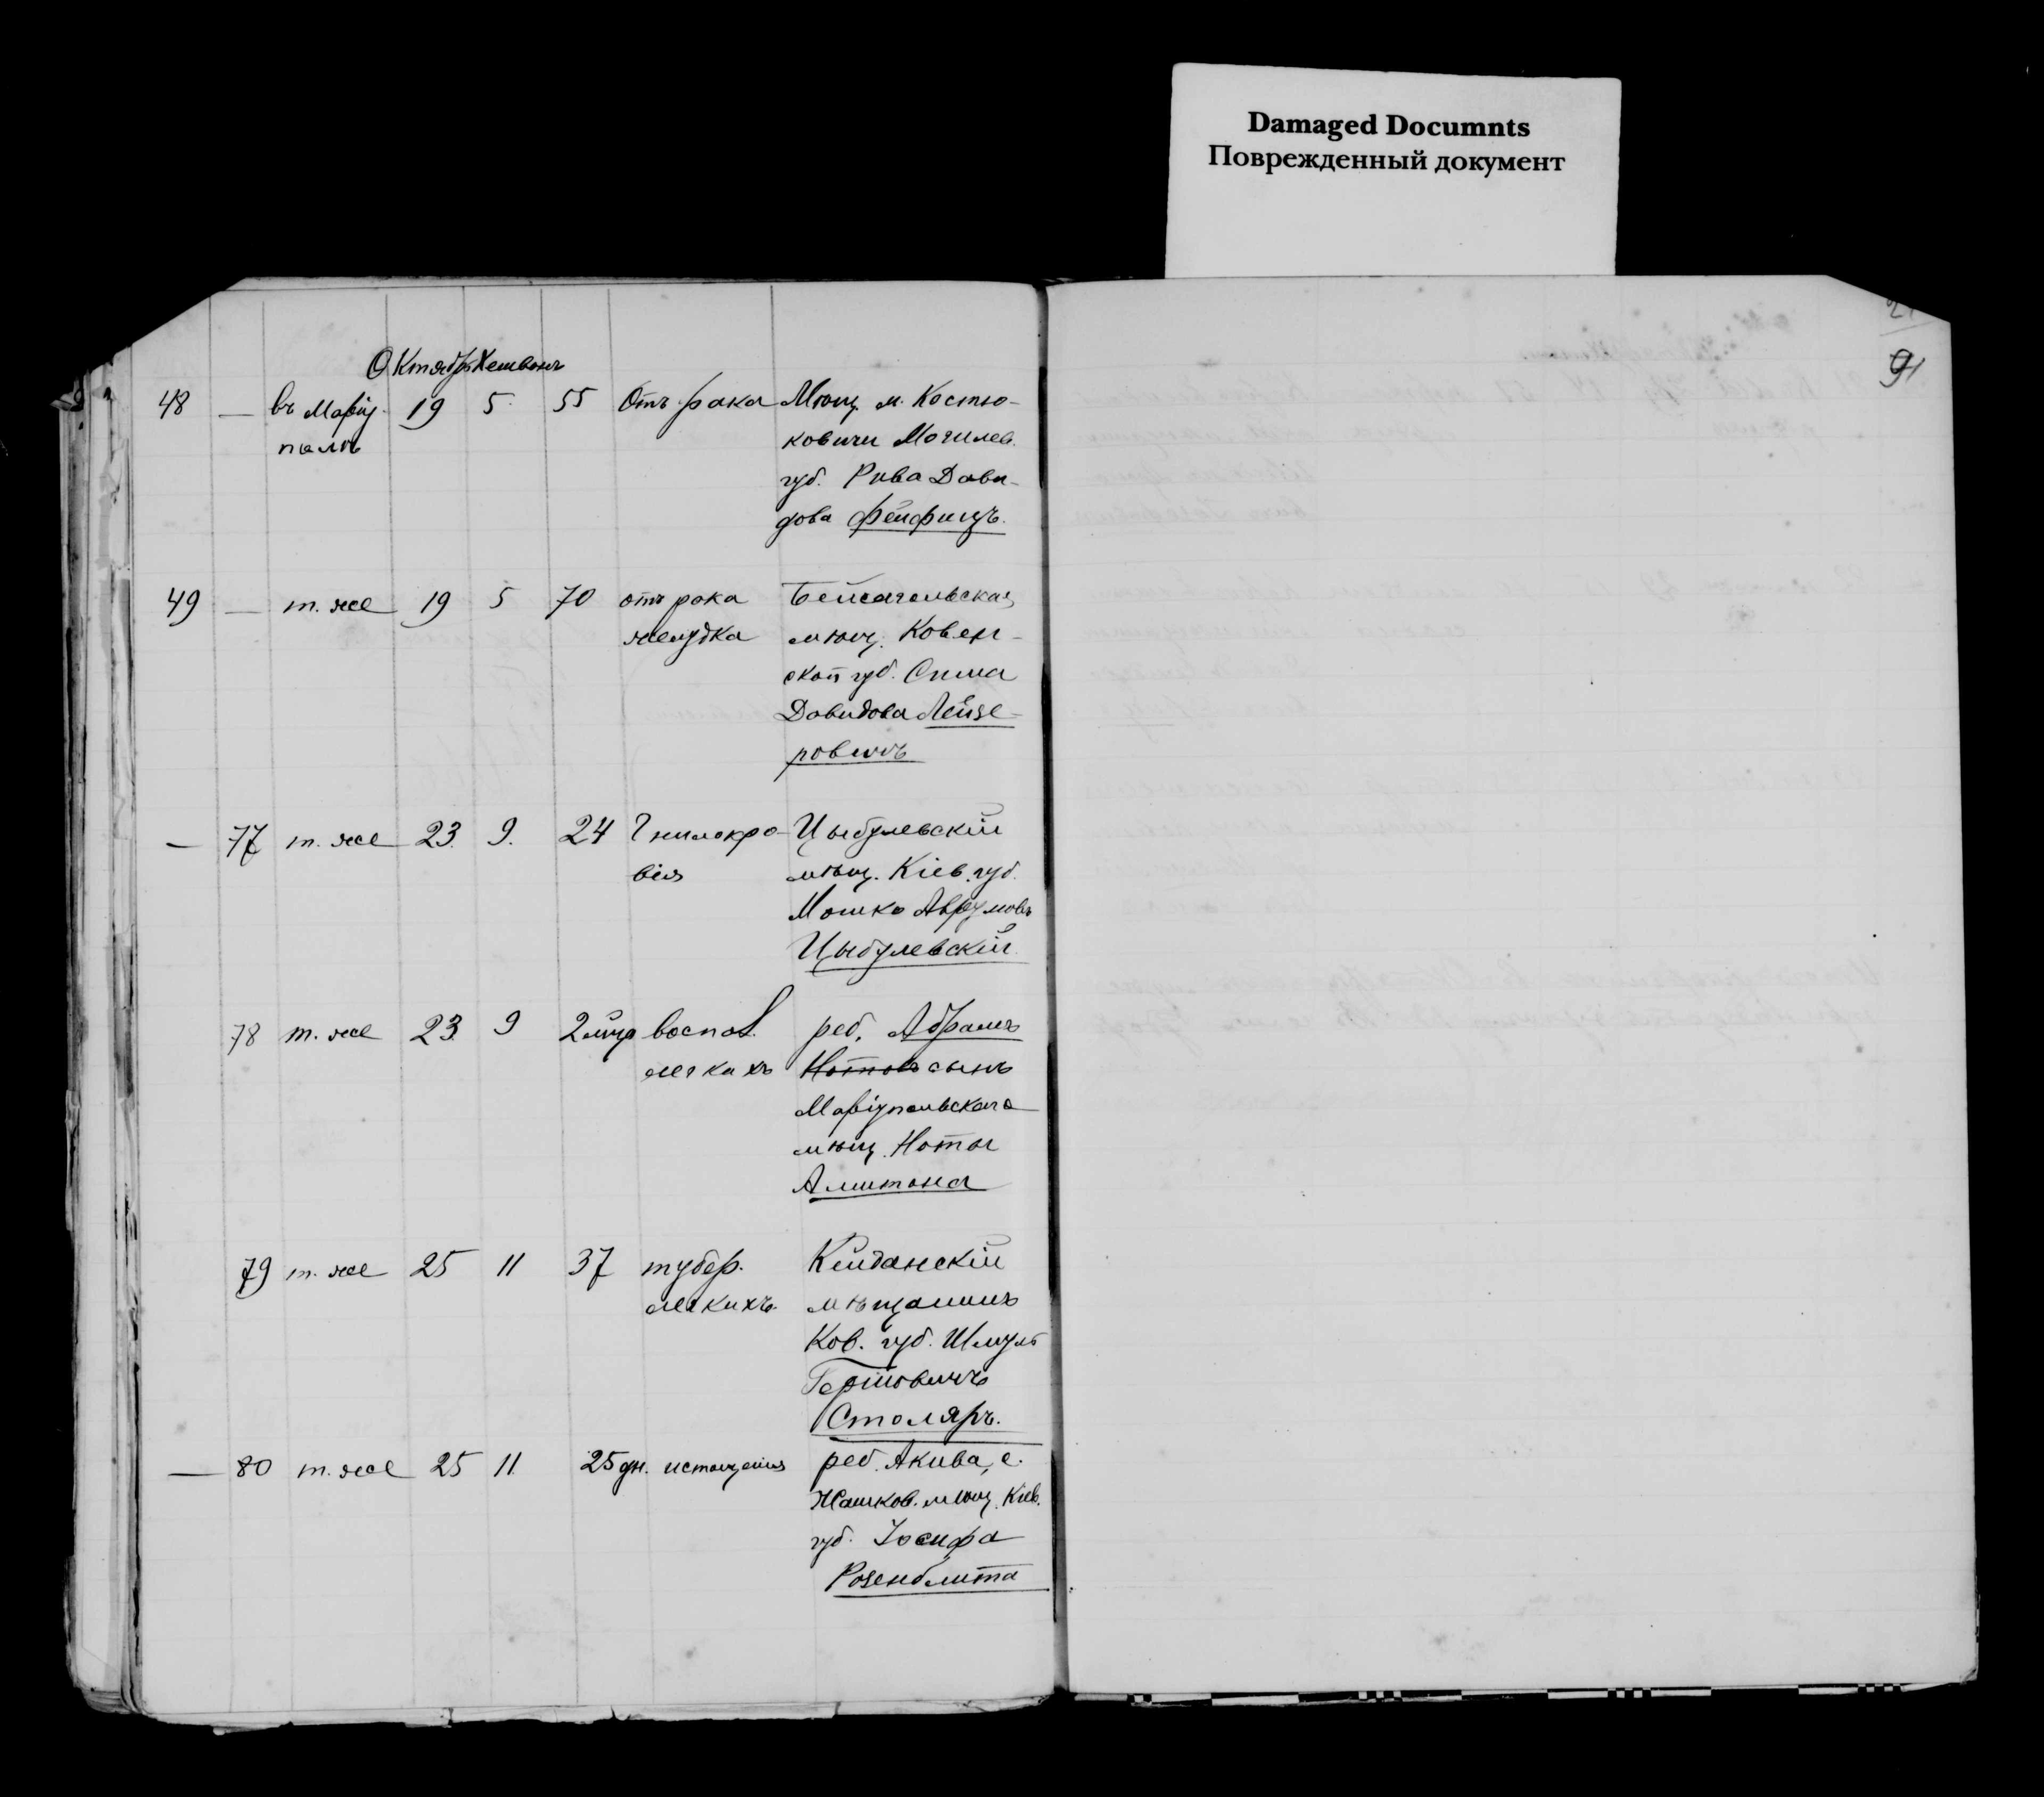 Damaged Documnts
Поврежденный документ
91
Октябр Хешвонъ
48 — въ Маріу- 19 5. 55 Отъ рака Мѣщ. м. Костю-
полѣ ковичи Могилев.
губ. Рива Дави-
дова Фейфицъ.
49 — т. же 19 5 70 отъ рака Бейсагольская
желудка мѣщ. Ковен-
ской губ. Сима
Давидова Лейзе-
ровичъ
— 77 т. же 23. 9. 24 Гнилокро- Цыбулевскій
вія мѣщ. Кіев. губ.
Мошко Аврумовъ
Цыбулевскій.
78 т. же 23. 9 2 мѣс воспал. реб. Абрамъ
легкихъ Нотовъ сынъ
Маріупольскаго
мѣщ.Ноты
Алитона
79 т. же 25 11 37 тубер. Кейданскій
легкихъ. мѣщанинъ
Ков. губ. Шмуль
Гершовичъ
Столяръ.
— 80 т. же 25 11. 25 дн. истощенія реб. Акива, с.
Жашков. мѣщ. Кіев.
губ. Іосифа
Розенблита